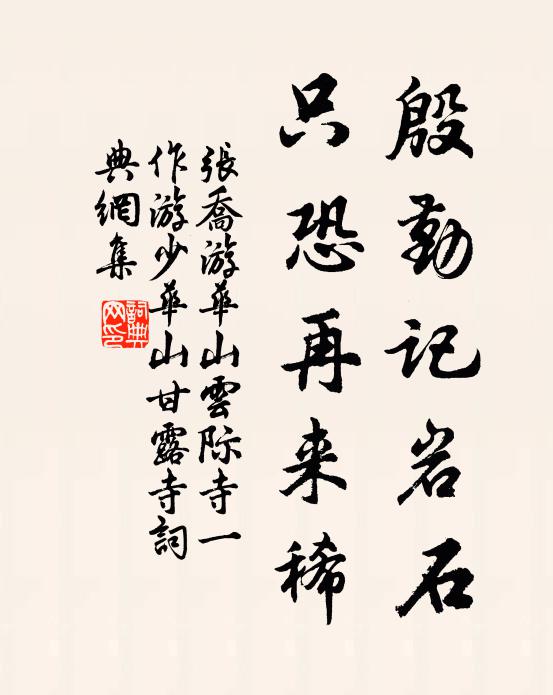 殷勤记岩石
只恐再来稀
張喬游華山雲际寺一
作游少華山甘露寺詞
典網集
詞典
网印